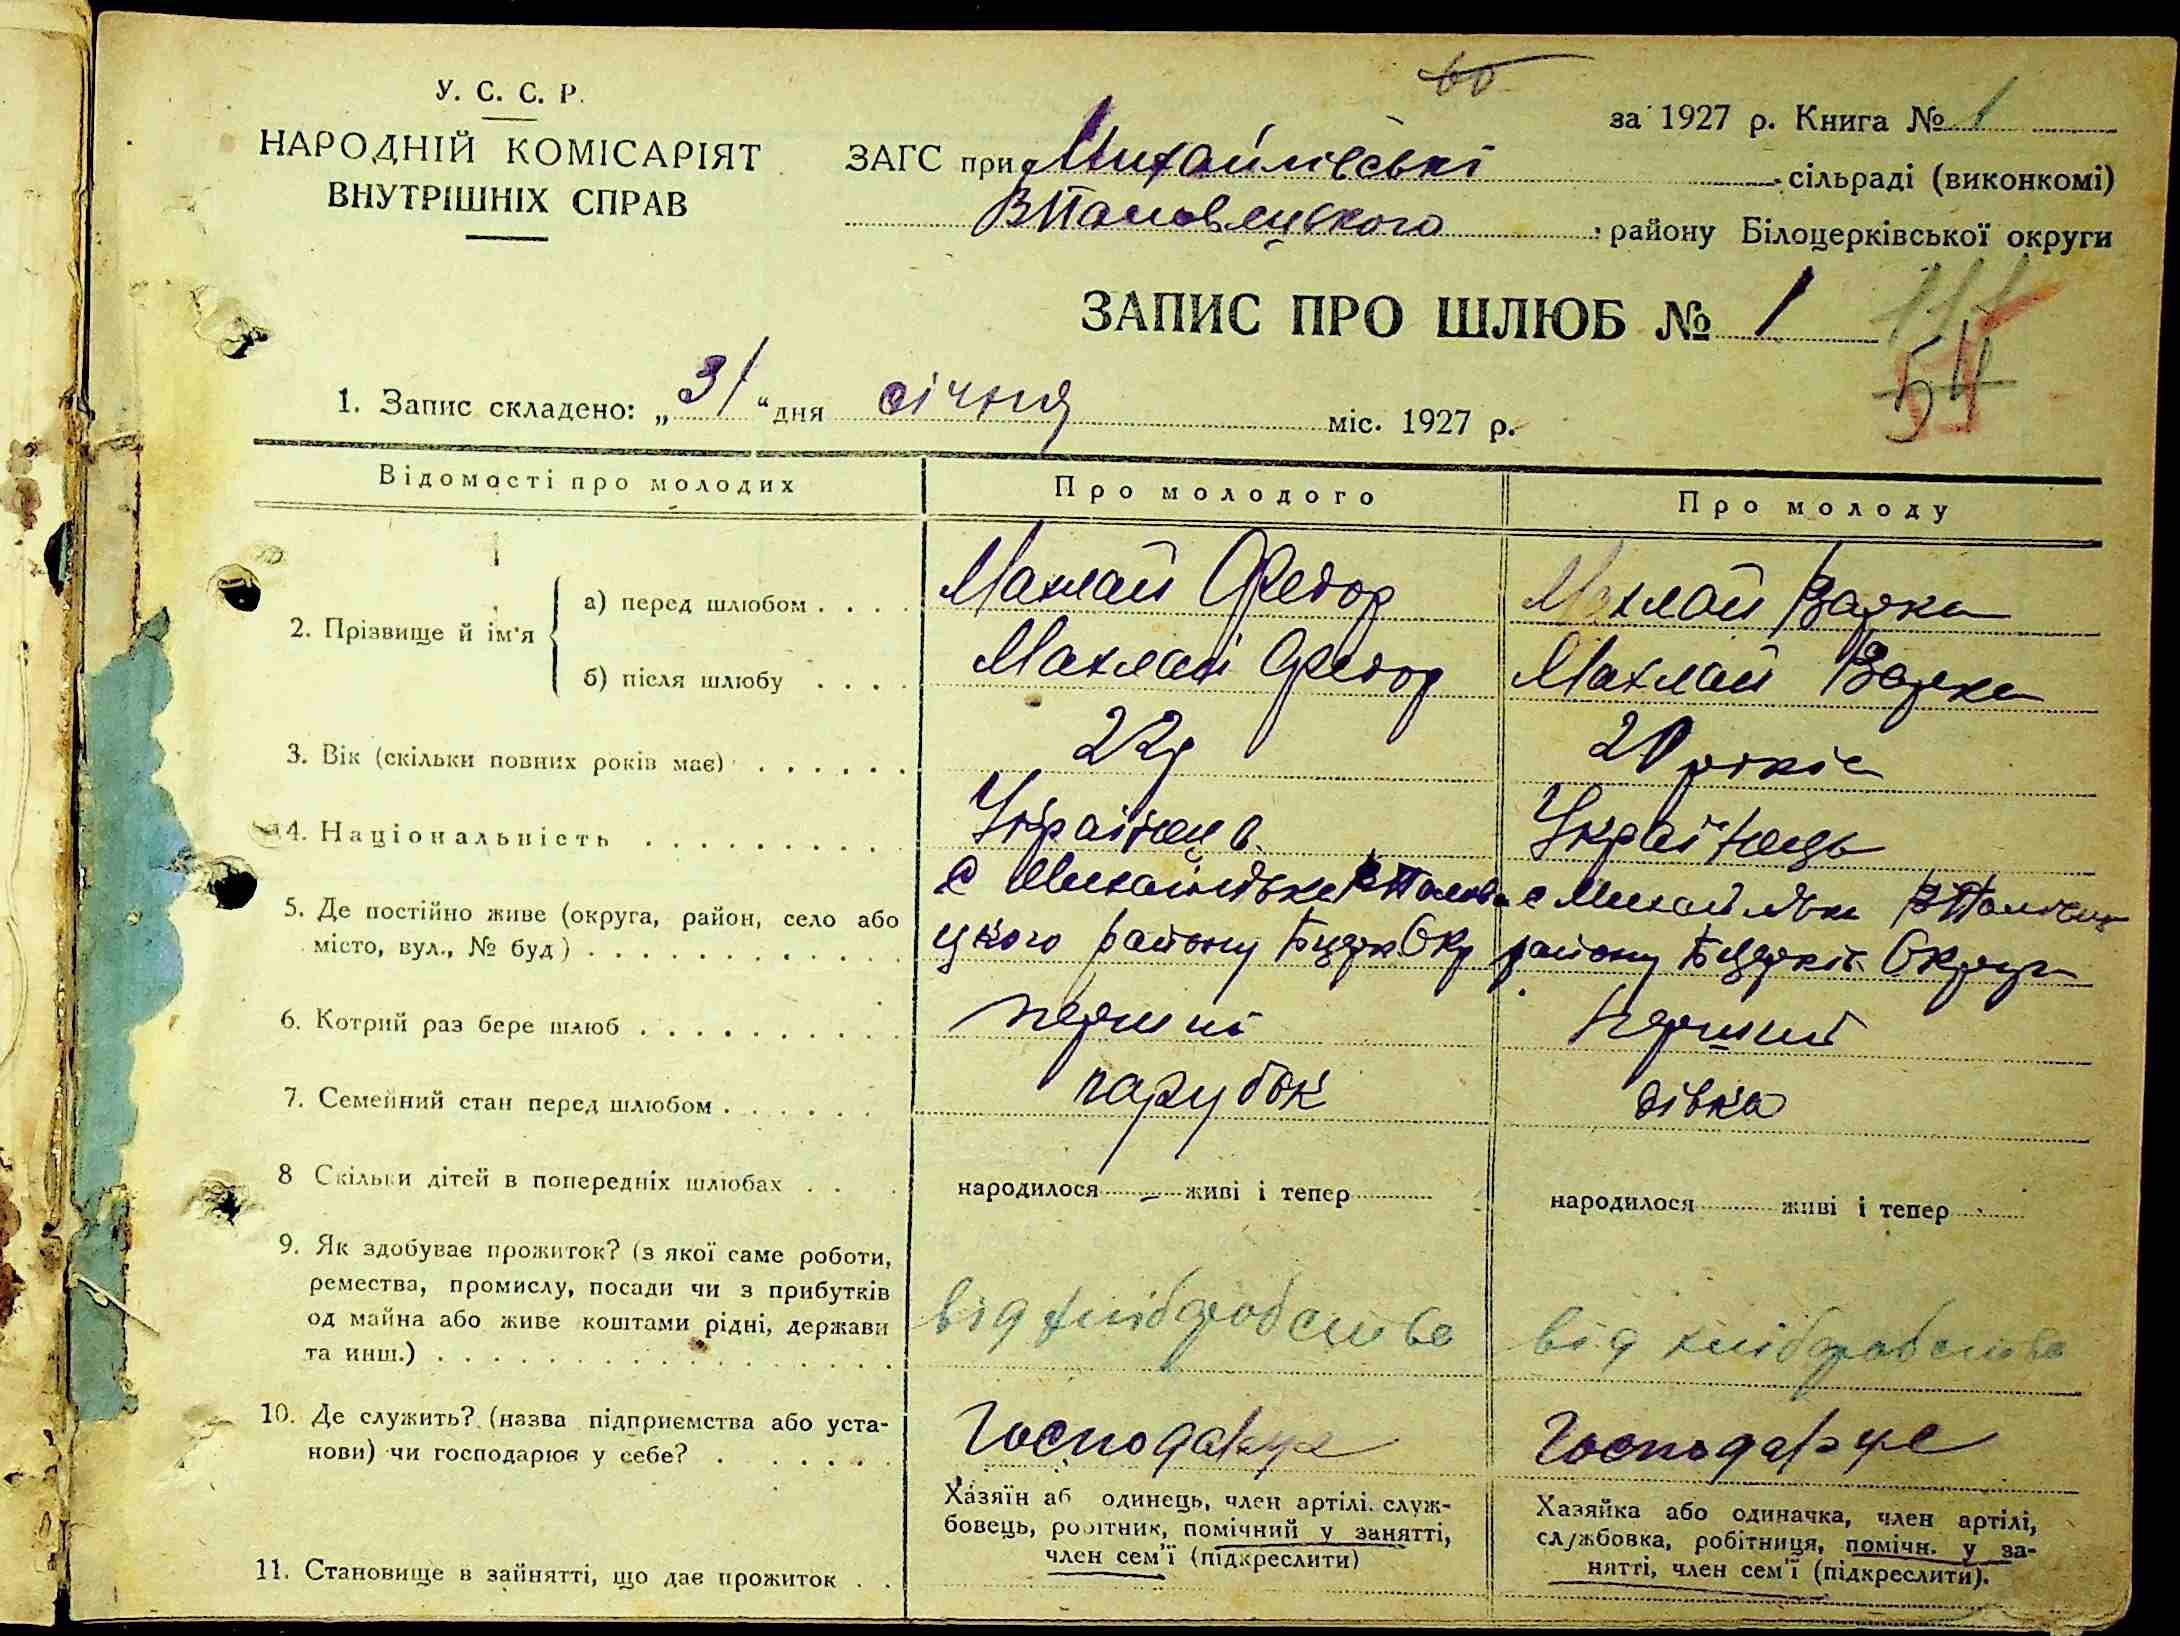 У. С. С. Р.
НАРОДНІЙ КОМІСАРІЯТ
ВНУТРІШНІХ СПРАВ
за 1927 р. Книга № 1
ЗАГС при Михайлівські сільраді (виконкомі)
району Білоцерківської округи
ЗАПИС ПРО ШЛЮБ № 1
54
1. Запис складено: „31“ дня січня міс. 1927 р.
Відомості про молодих
Про молодого
Про молоду
2. Прізвище й ім'я
а) перед шлюбом . . . .
Махлай Федор
Махлай Варка
б) після шлюбу . . . .
Махлай Федор
Махлай Варка
3. Вік (скільки повних років має) . . . . . .
22р
20 років
4. Національність . . . . . . . . .
Українець
Українець
5. Де постійно живе (округа, район, село або
місто, вул., № буд) . . . . . . . . . . . .
с Михайлівка
цького району Бцерк Окр
с Михайлівка
району Бцерків Округи
6. Котрий раз бере шлюб . . . . . . . . . .
перший
перший
7. Семейний стан перед шлюбом . . . . . .
парубок
дівка
8 Скільки дітей в попередніх шлюбах . . .
народилося — живі і тепер
народилося живі і тепер
9. Як здобуває прожиток? (з якої саме роботи,
ремества, промислу, посади чи з прибутків
од майна або живе коштами рідні, держави
та инш.) . . . . . . . . . . . . . . . .
від хліборобства
від хліборобства
10. Де служить? (назва підприємства або уста-
нови) чи господарює у себе? . . . . . .
Господарує
Господарує
11. Становище в зайнятті, що дає прожиток . .
Хазяїн аб одинець, член артілі. служ-
бовець, робітник, помічний у занятті,
член сем'ї (підкреслити)
Хазяйка або одиначка, член артілі,
службовка, робітниця, помічн. у за-
нятті, член сем'ї (підкреслити).